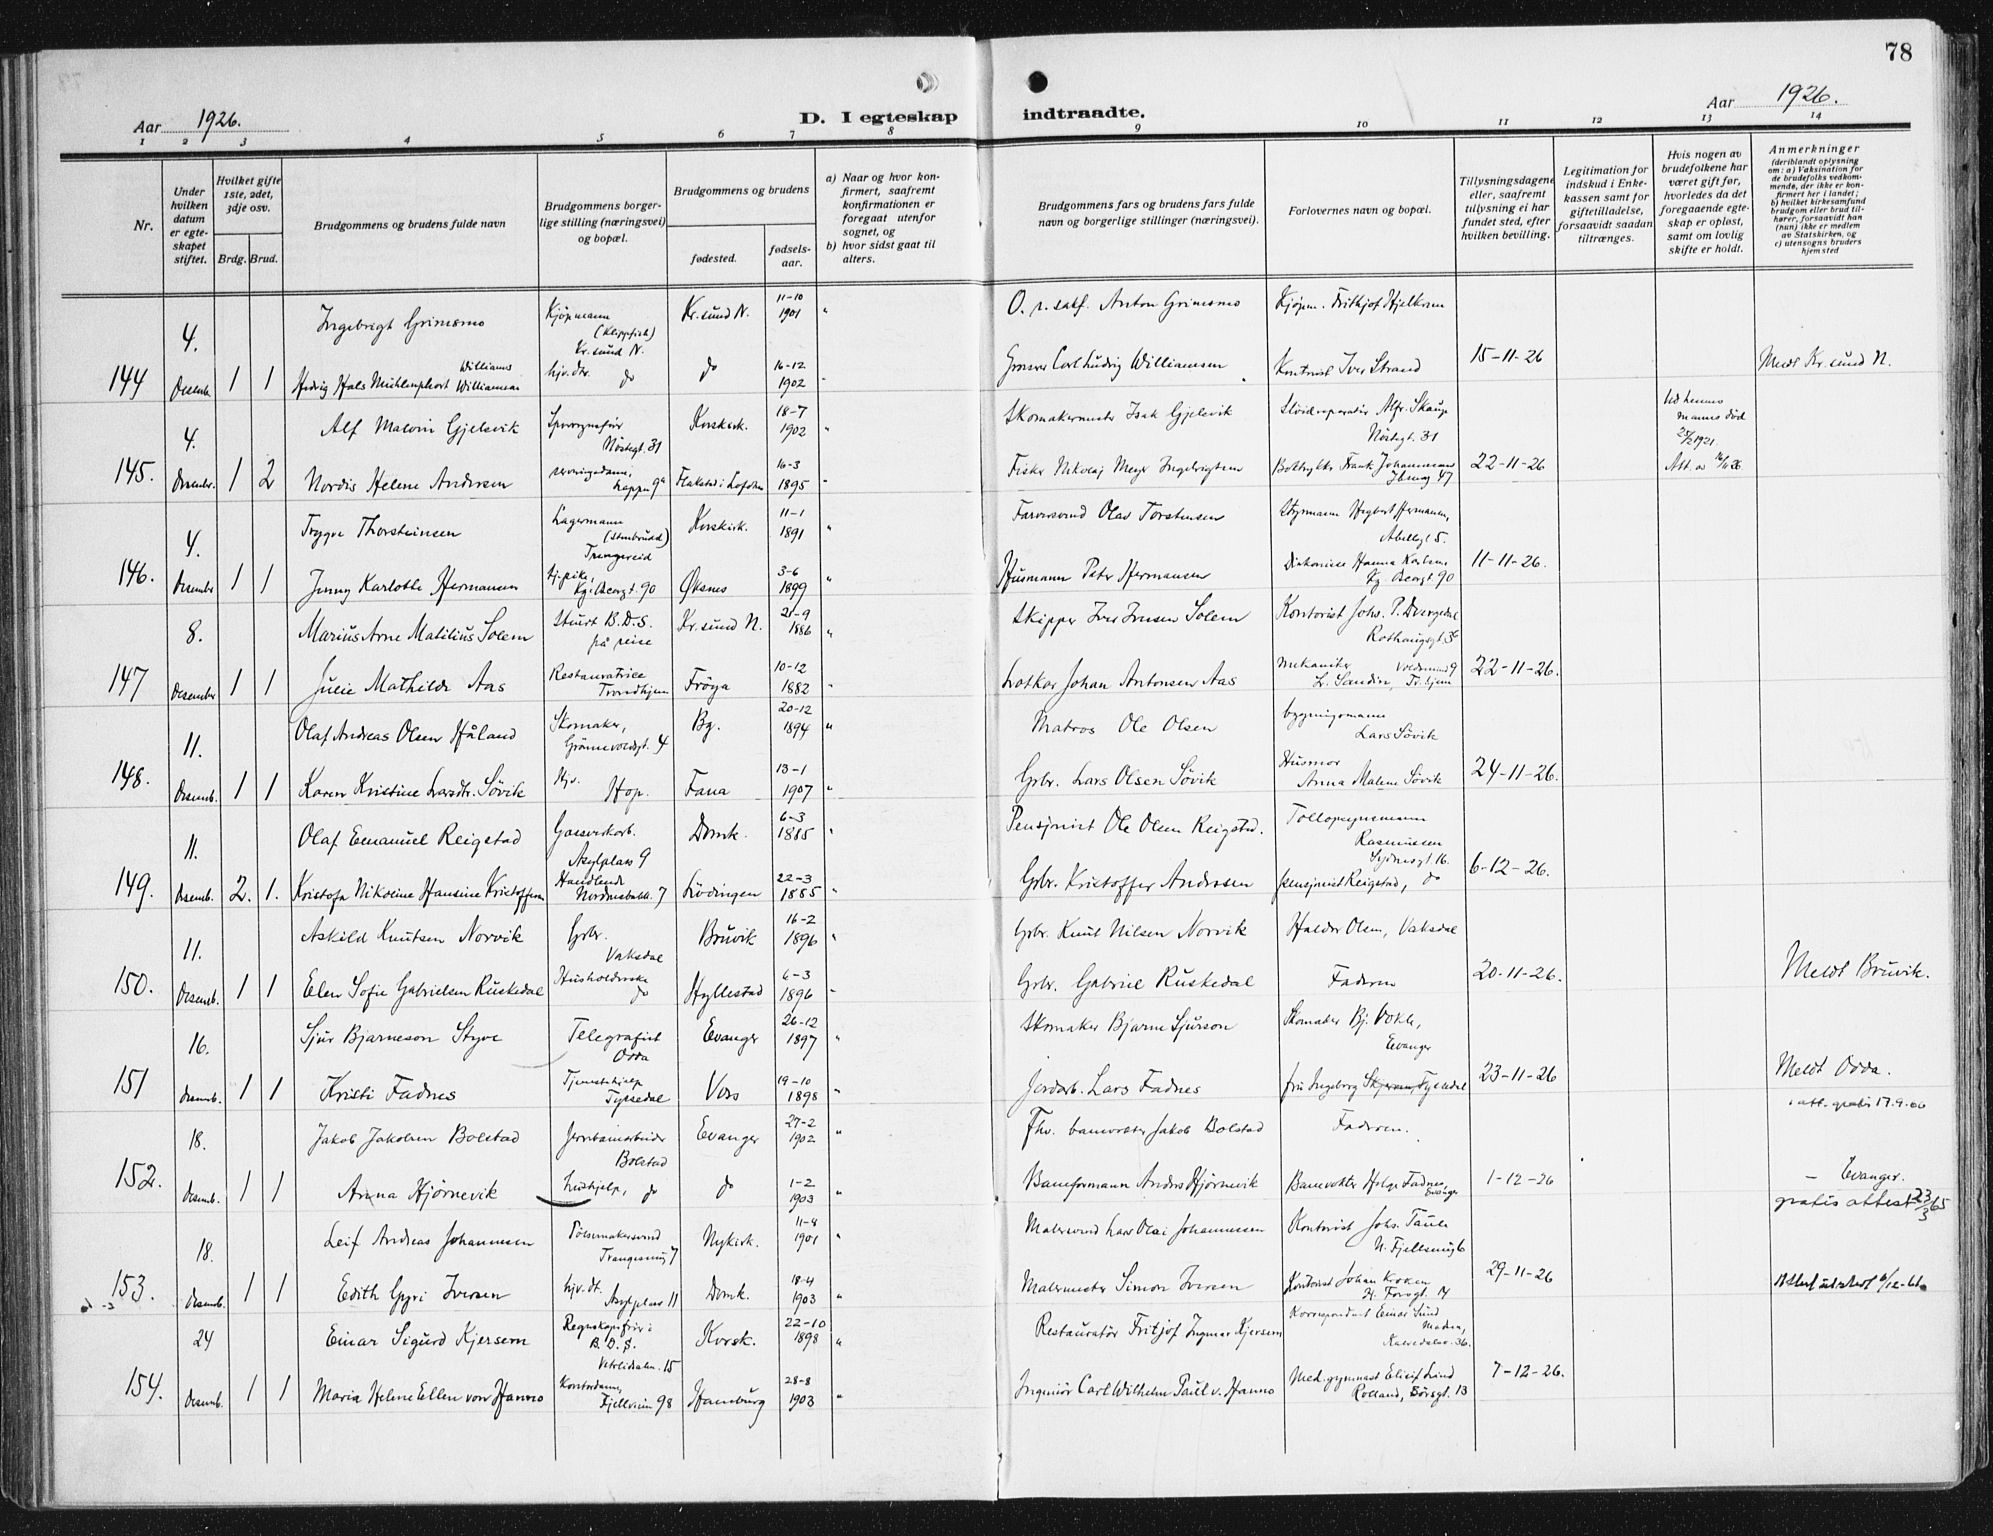 78
Aar 1926.
D. I egteskap indtraadte.
Aar 1926.
1 2 3 4 5 6 7 8 9 10 11 12 13 14
Nr.
Under hvilken datum er egteskapet stiftet.
Hvilket gifte 1ste, 2det, 3dje osv.
Brdg. Brud.
Brudgommens og brudens fulde navn
Brudgommens borgerlige stilling (næringsvei) og bopæl.
Brudgommens og brudens
fødested.
fødselsaar.
a) Naar og hvor konfirmert, saafremt konfirmationen er foregaat utenfor sognet, og
b) hvor sidst gaat til alters.
Brudgommens fars og brudens fars fulde navn og borgerlige stillinger (næringsvei).
Forlovernes navn og bopæl.
Tillysningsdagene eller, saafremt tillysning ei har fundet sted, efter hvilken bevilling.
Legitimation for indskud i Enkekassen samt for giftetilladelse, forsaavidt saadan tiltrænges.
Hvis nogen av brudefolkene har været gift før, hvorledes da det foregaaende egteskap er opløst, samt om lovlig skifte er holdt.
Anmerkninger (deriblandt oplysning om: a) Vaksination for de brudefolks vedkommende, der ikke er konfirmert her i landet; b) hvilket kirkesamfund brudgom eller brud tilhører, forsaavidt han (hun) ikke er medlem av Statskirken, og c) utensogns bruders hjemsted
4. Ingebrigt Grimsmo Kjøpmann (Klippfisk) Kr.sund N. Kr.sund N. 11-10 1901 " Anton Grimsmo Kjøpm. Frithjof Hjelkrem
144 Desemb. 1 1 Hedvig Hals Mühlenphort Williamsen Williams hjv. dtr. do do 16-12 1902 Carl Ludvig Williamsen Kontorist Iver Strand 15-11-26 Meldt Kr.sund N.
4. Alf Malvin Gjelsvik Nöstegt. 31 Korskirk. 18-7 1902 " Skomakermester Isak Gjelsvik Alfr. Skauge Nöstegt. 31 Ved hennes manns död
145. Desember. 1 2 Nordis Helene Andersen Flakstad i Lofoten 16-3 1895 Fisker Nikolaj Meyer Ingebrigtsen Frank Johannessen 47 22-11-26
4. Trygve Thorsteinsen Lagermann (Stenbrudd) Trengereid Korskirk. 11-1 1891 " Farversvend Olav Torstensen Styrmann Hermansen, 5.
146. Desember 1 1 Jenny Karlotte Hermansen tj.pike, Kg. Oscarsgt. 90 Øksnes 3-6 1899 " Husmann Peter Hermansen Diakonisse Hanna Karlsen Kg. Oscarsgt 90 11-11-26.
8. Marius Arne Matilius Solem Stuert B.D.S. på reise Kr.sund N. 21-9 1886 " Skipper Iver Iversen Solem Kontorist Johs. P. Dvergedal Rothaugsgt 3
147 Desember 1 1 Julie Mathilde Aas Restauratrice Trondhjem Fröya 10-12 1882 Johan Antonsen Aas Mekaniker L. Sandin, Tr.hjem 22-11-26.
11. Olaf Andreas Olsen Håland Skomaker, Grönnevoldsgt. 4 Bg. 20-12 1894 " Matros Ole Olsen bygningsmann Lars Sövik
148. Desemb. 1 1 Karen Kristine Larsdtr. Sövik Hjv. Hop. Fana 13-1 1907 " Grbr. Lars Olsen Sövik Husmor Anna Malene Sövik 24-11-26.
11. Olaf Emanuel Reigstad Gassverksarb. Asylplass 9 Domk. 6-3 1885 ' Pensjonist Ole Olsen Reigstad. Tolloppsynsmann Rasmussen Sydnesgt. 16.
149. Desemb. 2. 1. Kristofa Nikoline Hansine Kristoffersen Handlende 7 Lödingen 22-3 1885 " Grbr. Kristoffer Andersen pensjonist Reigstad, do 6-12-26.
11. Askild Knutsen Norvik Grbr. Vaksdal Brüvik 16-2 1896 " Grbr. Knut Nilsen Norvik Haldor Olsen, Vaksdal
150. Desemb. 1 1 Elen Sofie Gabrielsen Ruskedal Husholderske do Hyllestad 6-3 1896 Grbr. Gabriel Ruskedal Faderen 20-11-26. Meldt Bruvik.
16. Sjur Bjarneson Styve Telegrafist Odda Evanger 26-12 1897 " Skomaker Bjarne Sjurson Skomaker Bj. Evanger
151 Desemb. 1 1 Kristi Fadnes Tjenestehjelp Tyssedal Voss 19-10 1898 " Jordarb. Lars Fadnes fru Ingeborg Tyssedal 23-11-26 Meldt Odda.
att. gratis 17.9.66
18. Jakob Jakobsen Bolstad Jernbanearbeider Bolstad Evanger 27-2 1902 " Fhv. banevokter Jakob Bolstad Faderen.
152. Desemb. 1 1 Anna Hjørnevik hushjelp, do do 1-2 1903 " Baneformann Anders Hjørnevik Banevokter Helge Fadnes, Evanger 1-12-26 - Evanger.
gratis attest 23/3 65
18. Leif Andreas Johannessen Pölsemakersvend 7 Nykirk. 11-8 1901 " Malersvend Lars Olai Johannessen Kontorist Johs. Taule N. Fjellsmug 6
153. Desemb. 1 1 Edith Gyri Iversen hjv. dt. Asylplass 11 Domk. 18-4 1903 " Malermester Simon Iversen Kontorist Johan Kroken 29-11-26 Attest utstedt 6/12-61
24 Einar Sigurd Kjersem Regnskapsfører i B.D.S. 15 Korsk. 22-10 1898 " Restauratör Fritjof Ingmar Kjersem Korrespondent Einar Sund Madsen, Kalvedalsv. 36.
154. Desemb. 1 1 Maria Helene Ellen von Hanno Kontordame, Fjellveien 98 Hamburg 28-8 1903 " Ingeniör Carl Wilhelm Paul v. Hanno Med. gymnast Rolland, 13 7-12-26.